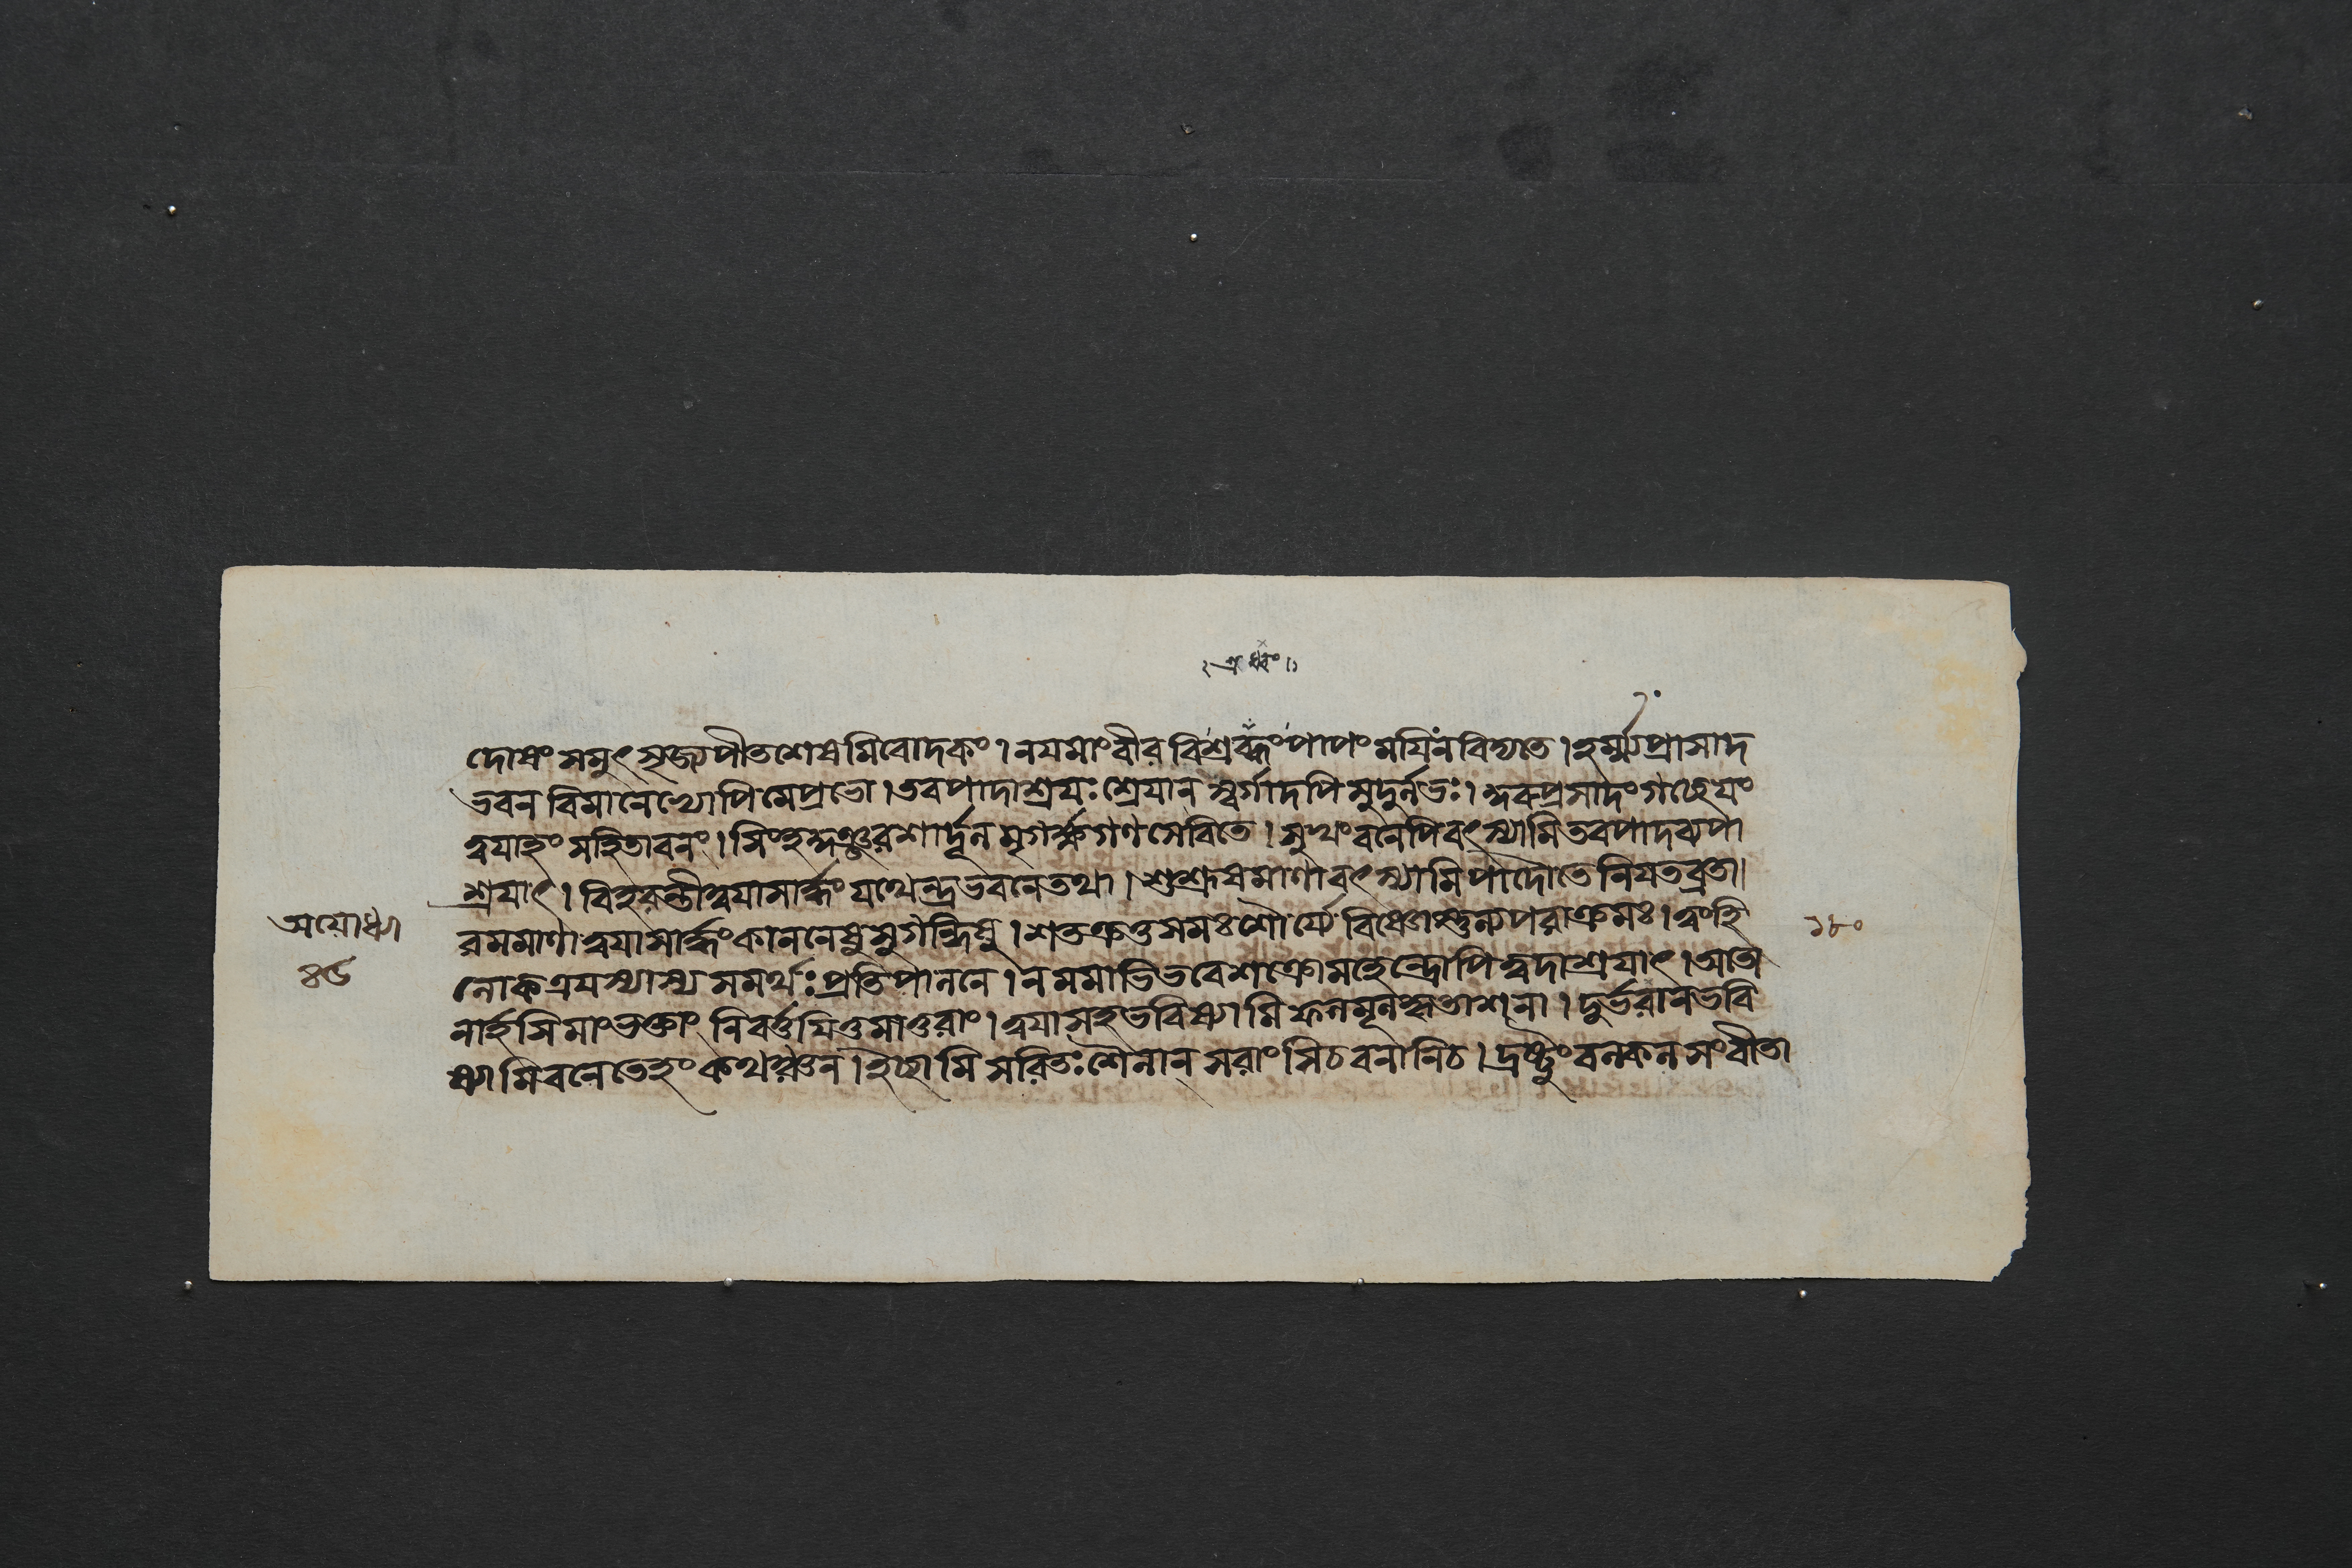 দোষং সমুৎসৃজ্য পীতশেষমিবোদকং । নযমাং বীর বিশ্রব্ধং পাপং মযি ন বিদ্যতে । হর্ম্ম্যপ্রাসাদ
ভবন বিমানেভ্যোপি মে প্রভো । তব পাদাশ্রযঃ শ্রেযান স্বর্গাদপি সুদুর্লভঃ । প্রসাদং গচ্ছেযং
ত্বযাহং সহিতা বনং । শার্দূল মৃগর্ক্ষগণ সেবিতে । সুখং বনেপি বৎস্যামি তব পাদব্যপা
শ্রযাৎ । বিহরন্তী ত্বযা সার্দ্ধং যথেন্দ্রভবনে তথা । শুশ্রূষমাণা বৎস্যামি পাদৌ তে নিযতব্রতা ।
রমমাণা ত্বযা সার্দ্ধং কাননেষু সুগন্ধিষু । শতক্রতুসমঃ শৌর্য্যে বিষ্ণোস্তুল্যপরাক্রমঃ । ত্বং হি
লোকত্রযস্যাস্য সমর্থঃ প্রতিপালনে । ন মমাভিভবে শক্তো মহেন্দ্রোপি ত্বদাশ্রযাৎ । অতো
নার্হসি মাং ভক্তাং নিবর্ত্তযিতুমাতুরাং । ত্বযা সহ ভবিষ্যামি ফলমূলকৃতাশনা । দুর্ভরা ন ভবি
ষ্যামি বনে তেহং কথঞ্চন । ইচ্ছামি সরিতঃ শৈলান্ সরাংসি চ বনানি চ । দ্রষ্টুং বনকলসংবীতা
অযোধ্যা
১৮০